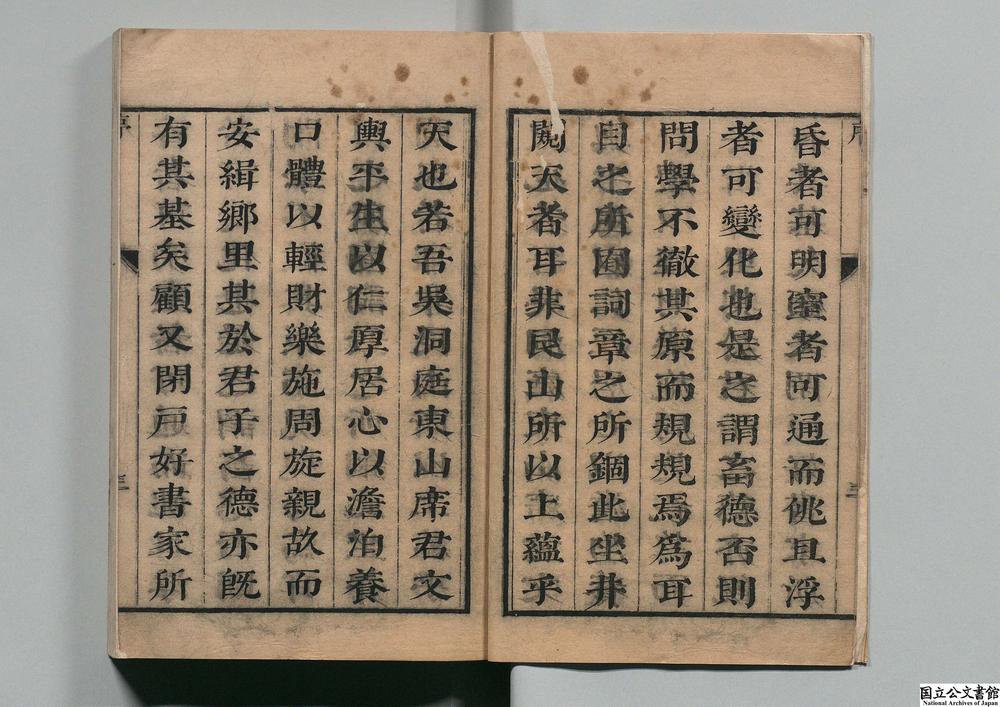 序
昏者可明窒者可通而佻且浮
者可變化也是之謂畜德否則
問學不徹其原而規規焉爲耳
目之所囿詞章之所錮此坐井
闚天者耳非艮山所以上蘊乎
三
天也若吾吳洞庭東山席君文
輿平生以仁厚居心以澹泊養
口體以輕財樂施周旋親故而
安緝鄉里其於君子之德亦旣
有其基矣顧又閉戸好書家所
序
三
国立公文書館
National Archives of Japan